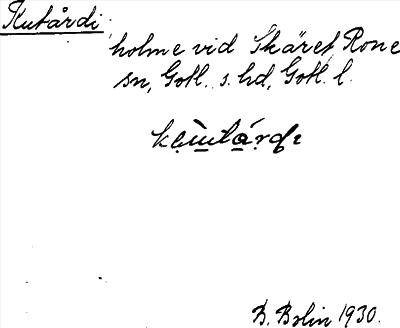 Klutårdi
holme vid Skäret, Rone
sn, Gotl. s. hd, Gotl. l.
B. Bolin 1930.